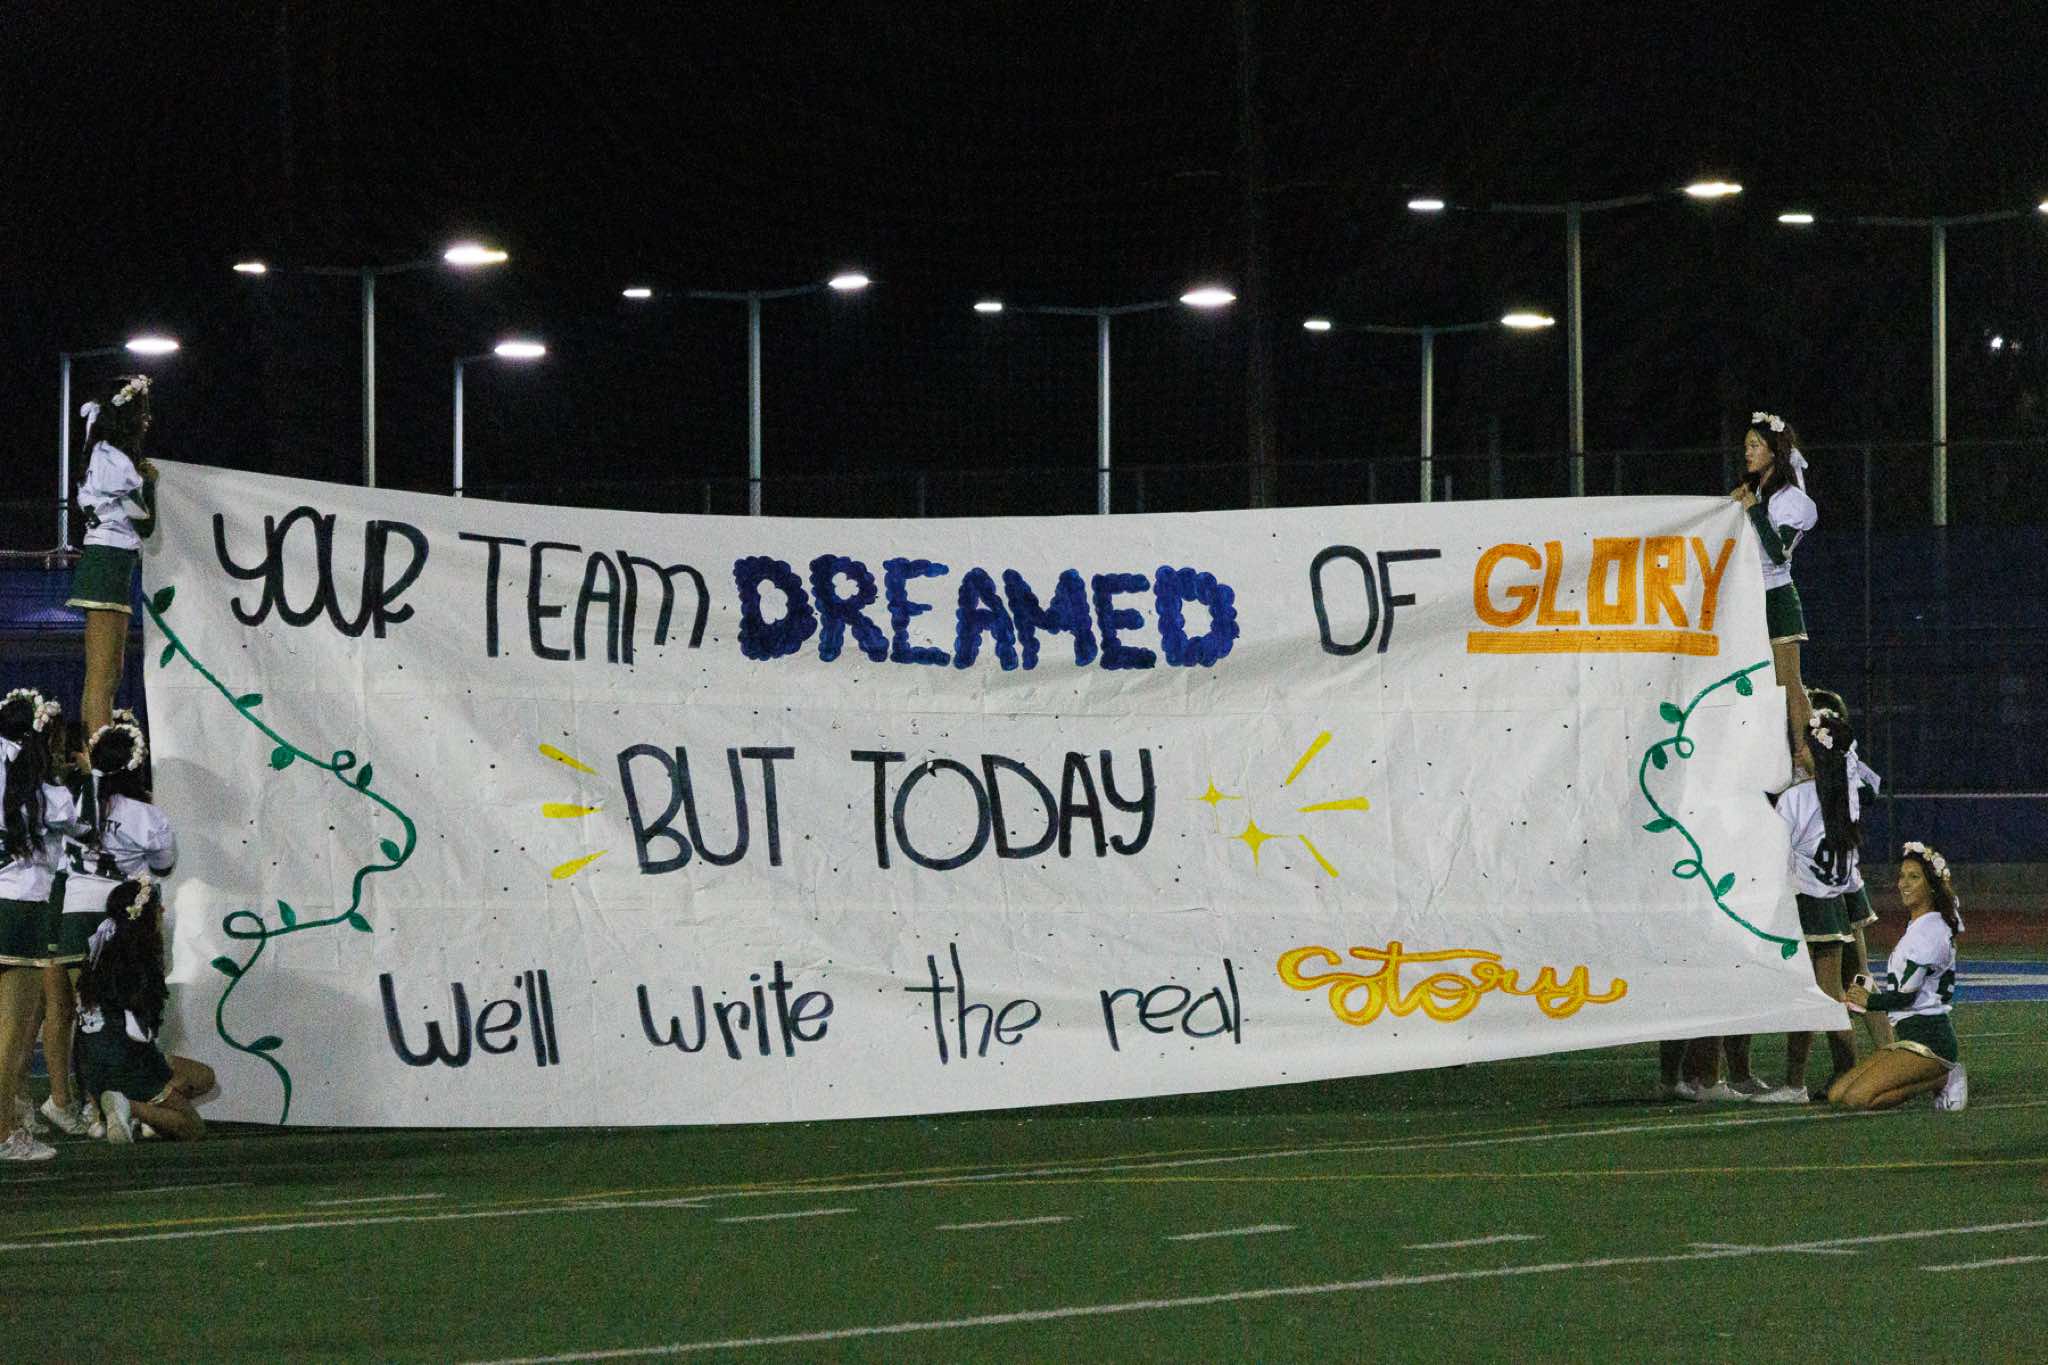 YOUR TEAM DREAMED OF GLORY
BUT TODAY
We'll write the real story